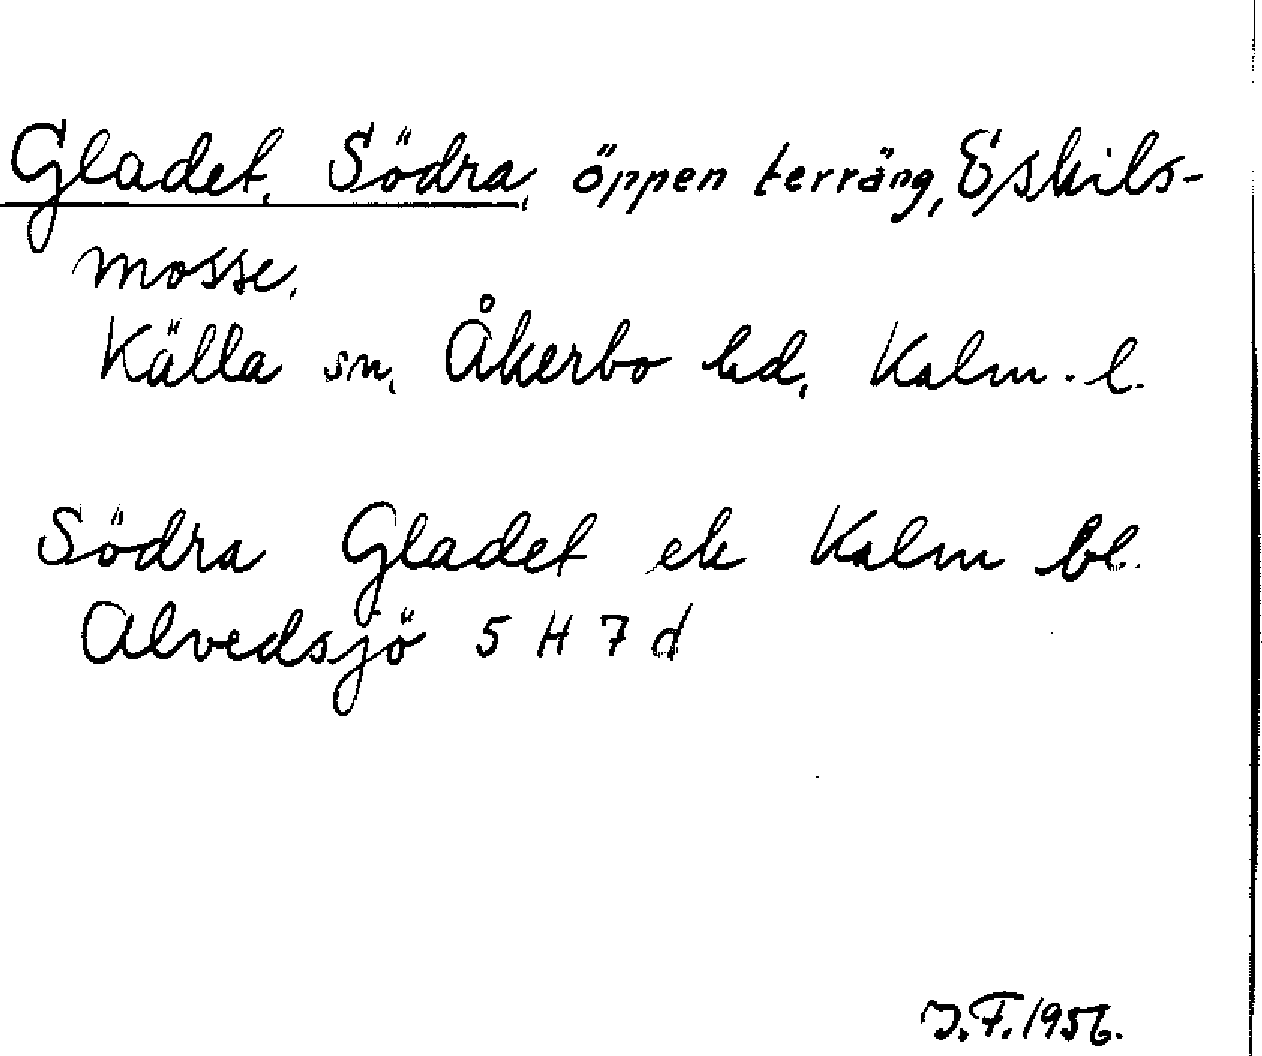 Gladet, Södra, öppen terräng, Eskils-
mosse.
Källa sn, Åkerbo hd, Kalm. l.
Södra Gladet ek Kalm bl.
Alvedsjö 5 H 7 d
J.F. 1956.